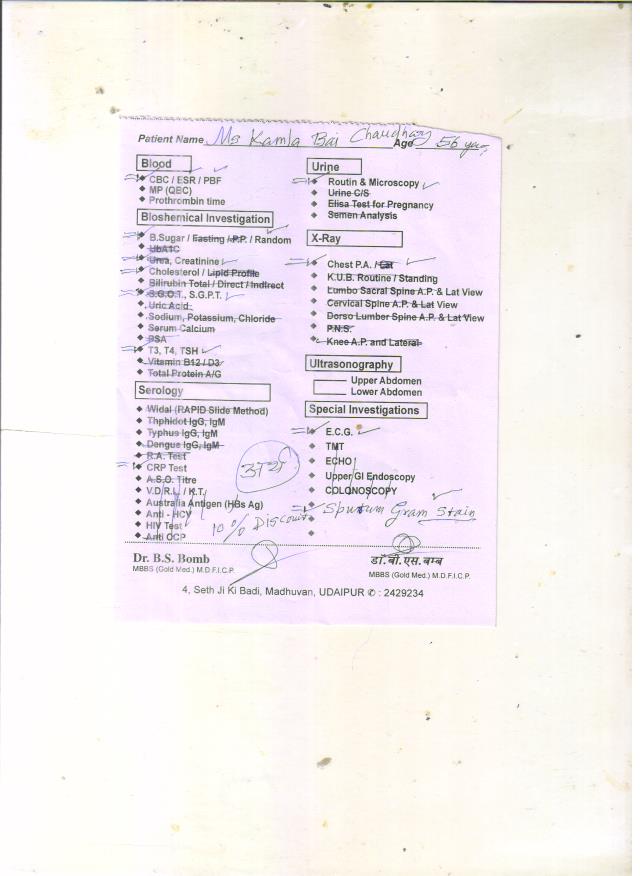 Patient Name Ms Kamla Bai Chaudhary Age 56 yrs,
Blood
CBC / ESR / PBF
MP (QBC)
Prothrombin time
Bioshemical Investigation
B.Sugar / Easting / P.P. / Random
UbA1C
Urea, Creatinine
Cholesterol / Lipid Profile
Bilirubin Total / Direct / Indirect
S.G.O.T., S.G.P.T.
Uric Acid
Sodium, Potassium, Chloride
Serum Calcium
PSA
T3, T4, TSH
Vitamin B12 / D3
Total Protein A/G
Serology
Widal (RAPID Slide Method)
Thphidot IgG, IgM
Typhus IgG, IgM
Dengue IgG, IgM
R.A. Test
CRP Test
A.S.O. Titre
V.D.R.L. / K.T.
Australia Antigen (HBs Ag)
Anti - HCV
HIV Test
Anti CCP
10% Discount
Urine
Routin & Microscopy
Urine C/S
Elisa Test for Pregnancy
Semen Analysis
X-Ray
Chest P.A. / Lat
K.U.B. Routine / Standing
Lumbo Sacral Spine A.P. & Lat View
Cervical Spine A.P. & Lat View
Dorso Lumber Spine A.P. & Lat View
P.N.S.
Knee A.P. and Lateral
Ultrasonography
Upper Abdomen
Lower Abdomen
Special Investigations
E.C.G.
TMT
ECHO
Upper GI Endoscopy
COLONOSCOPY
Sputum Gram Stain
Dr. B.S. Bomb
MBBS (Gold Med.) M.D.F.I.C.P.
डॉ. बी.एस. बम्ब
MBBS (Gold Med.) M.D.F.I.C.P.
4, Seth Ji Ki Badi, Madhuvan, UDAIPUR ✆ : 2429234